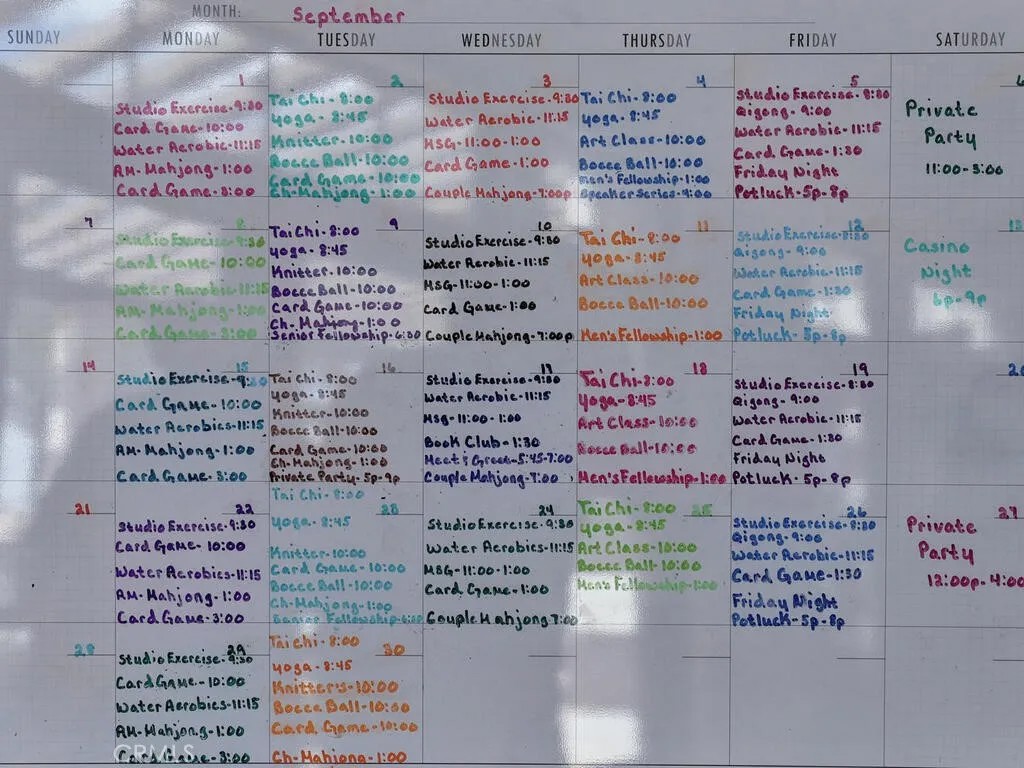 MONTH: September
SUNDAY MONDAY TUESDAY WEDNESDAY THURSDAY FRIDAY SATURDAY
1
Studio Exercise-9:30
Card Game-10:00
Water Aerobic-11:15
AM-Mahjong-1:00
Card Game-3:00
2
Tai Chi-8:00
yoga-8:45
Knitter-10:00
Bocce Ball-10:00
Card Game-10:00
Ch-Mahjong-1:00
3
Studio Exercise-9:30
Water Aerobic-11:15
MSG-11:00-1:00
Card Game-1:00
Couple Mahjong-7:00p
4
Tai Chi-8:00
yoga-8:45
Art Class-10:00
Bocce Ball-10:00
Men's Fellowship-1:00
Speaker Series-4:00
5
Studio Exercise-8:30
Qigong-9:00
Water Aerobic-11:15
Card Game-1:30
Friday Night
Potluck-5p-8p
6
Private
Party
11:00-3:00
7
8
Studio Exercise-9:30
Card Game-10:00
Water Aerobic-11:15
AM-Mahjong-1:00
Card Game-3:00
9
Tai Chi-8:00
yoga-8:45
Knitter-10:00
Bocce Ball-10:00
Card Game-10:00
Ch-Mahjong-1:00
Senior Fellowship-6:30
10
Studio Exercise-9:30
Water Aerobic-11:15
MSG-11:00-1:00
Card Game-1:00
Couple Mahjong-7:00p
11
Tai Chi-8:00
yoga-8:45
Art Class-10:00
Bocce Ball-10:00
Men's Fellowship-1:00
12
Studio Exercise-8:30
Qigong-9:00
Water Aerobic-11:15
Card Game-1:30
Friday Night
Potluck-5p-8p
13
Casino
Night
6p-9p
14
15
Studio Exercise-9:30
Card Game-10:00
Water Aerobics-11:15
AM-Mahjong-1:00
Card Game-3:00
16
Tai Chi-8:00
yoga-8:45
Knitter-10:00
Bocce Ball-10:00
Card Game-10:00
Ch-Mahjong-1:00
Private Party-5p-9p
17
Studio Exercise-9:30
Water Aerobic-11:15
Msg-11:00-1:00
Book Club-1:30
Meet & Greet-5:45-7:00
Couple Mahjong-7:00
18
Tai Chi-8:00
yoga-8:45
Art Class-10:00
Bocce Ball-10:00
Men's Fellowship-1:00
19
Studio Exercise-8:30
Qigong-9:00
Water Aerobic-11:15
Card Game-1:30
Friday Night
Potluck-5p-8p
20
21
22
Studio Exercise-9:30
Card Game-10:00
Water Aerobics-11:15
AM-Mahjong-1:00
Card Game-3:00
23
Tai Chi-8:00
yoga-8:45
Knitter-10:00
Card Game-10:00
Bocce Ball-10:00
Ch-Mahjong-1:00
Senior Fellowship-6:30
24
Studio Exercise-9:30
Water Aerobics-11:15
MSG-11:00-1:00
Card Game-1:00
Couple Mahjong 7:00
25
Tai Chi-8:00
yoga-8:45
Art Class-10:00
Bocce Ball-10:00
Men's Fellowship-1:00
26
Studio Exercise-8:30
Qigong-9:00
Water Aerobic-11:15
Card Game-1:30
Friday Night
Potluck-5p-8p
27
Private
Party
12:00p-4:00
28
29
Studio Exercise-9:30
Card Game-10:00
Water Aerobics-11:15
AM-Mahjong-1:00
Card Game-3:00
30
Tai Chi-8:00
yoga-8:45
Knitter's-10:00
Bocce Ball-10:00
Card Game-10:00
Ch-Mahjong-1:00
CRMLS